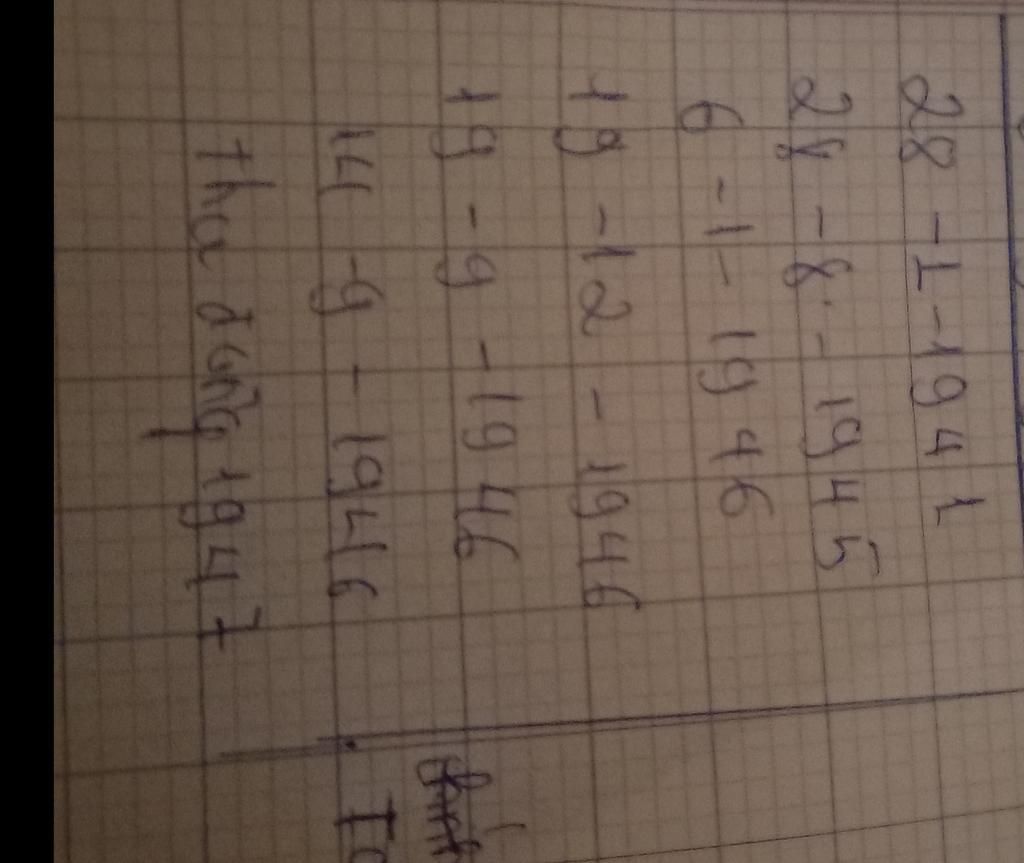 28 - 1 - 1941
28 - 8 - 1945
6 - 1 - 1946
19 - 12 - 1946
19 - 9 - 1946
14 - 9 - 1946
Thu đông 1947